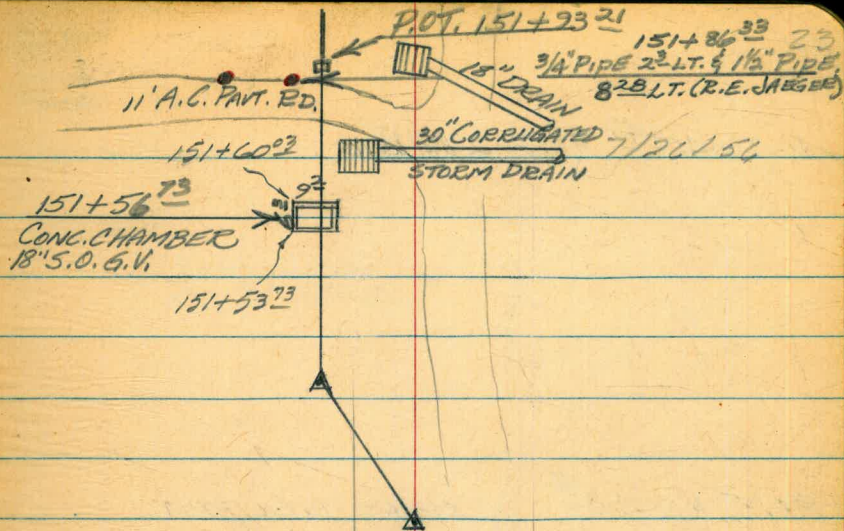 P.O.T. 151+93 21
151+86 33 23
3/4" PIPE 2 3 LT. & 1 1/2" PIPE
8 28 LT. (R.E. JAEGEE)
18" DRAIN
11' A.C. PAVT. RD.
30" CORRUGATED
STORM DRAIN
7/26/56
151+60 03
9 2
151+56 73
CONC. CHAMBER
18" S.O.G.V.
151+53 73